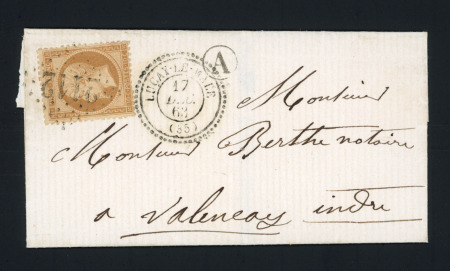 LUCAY-LE-MALE
17
DEC.
62
(35)
A
Monsieur
Monsieur Berthe notaire
a Valencay indre